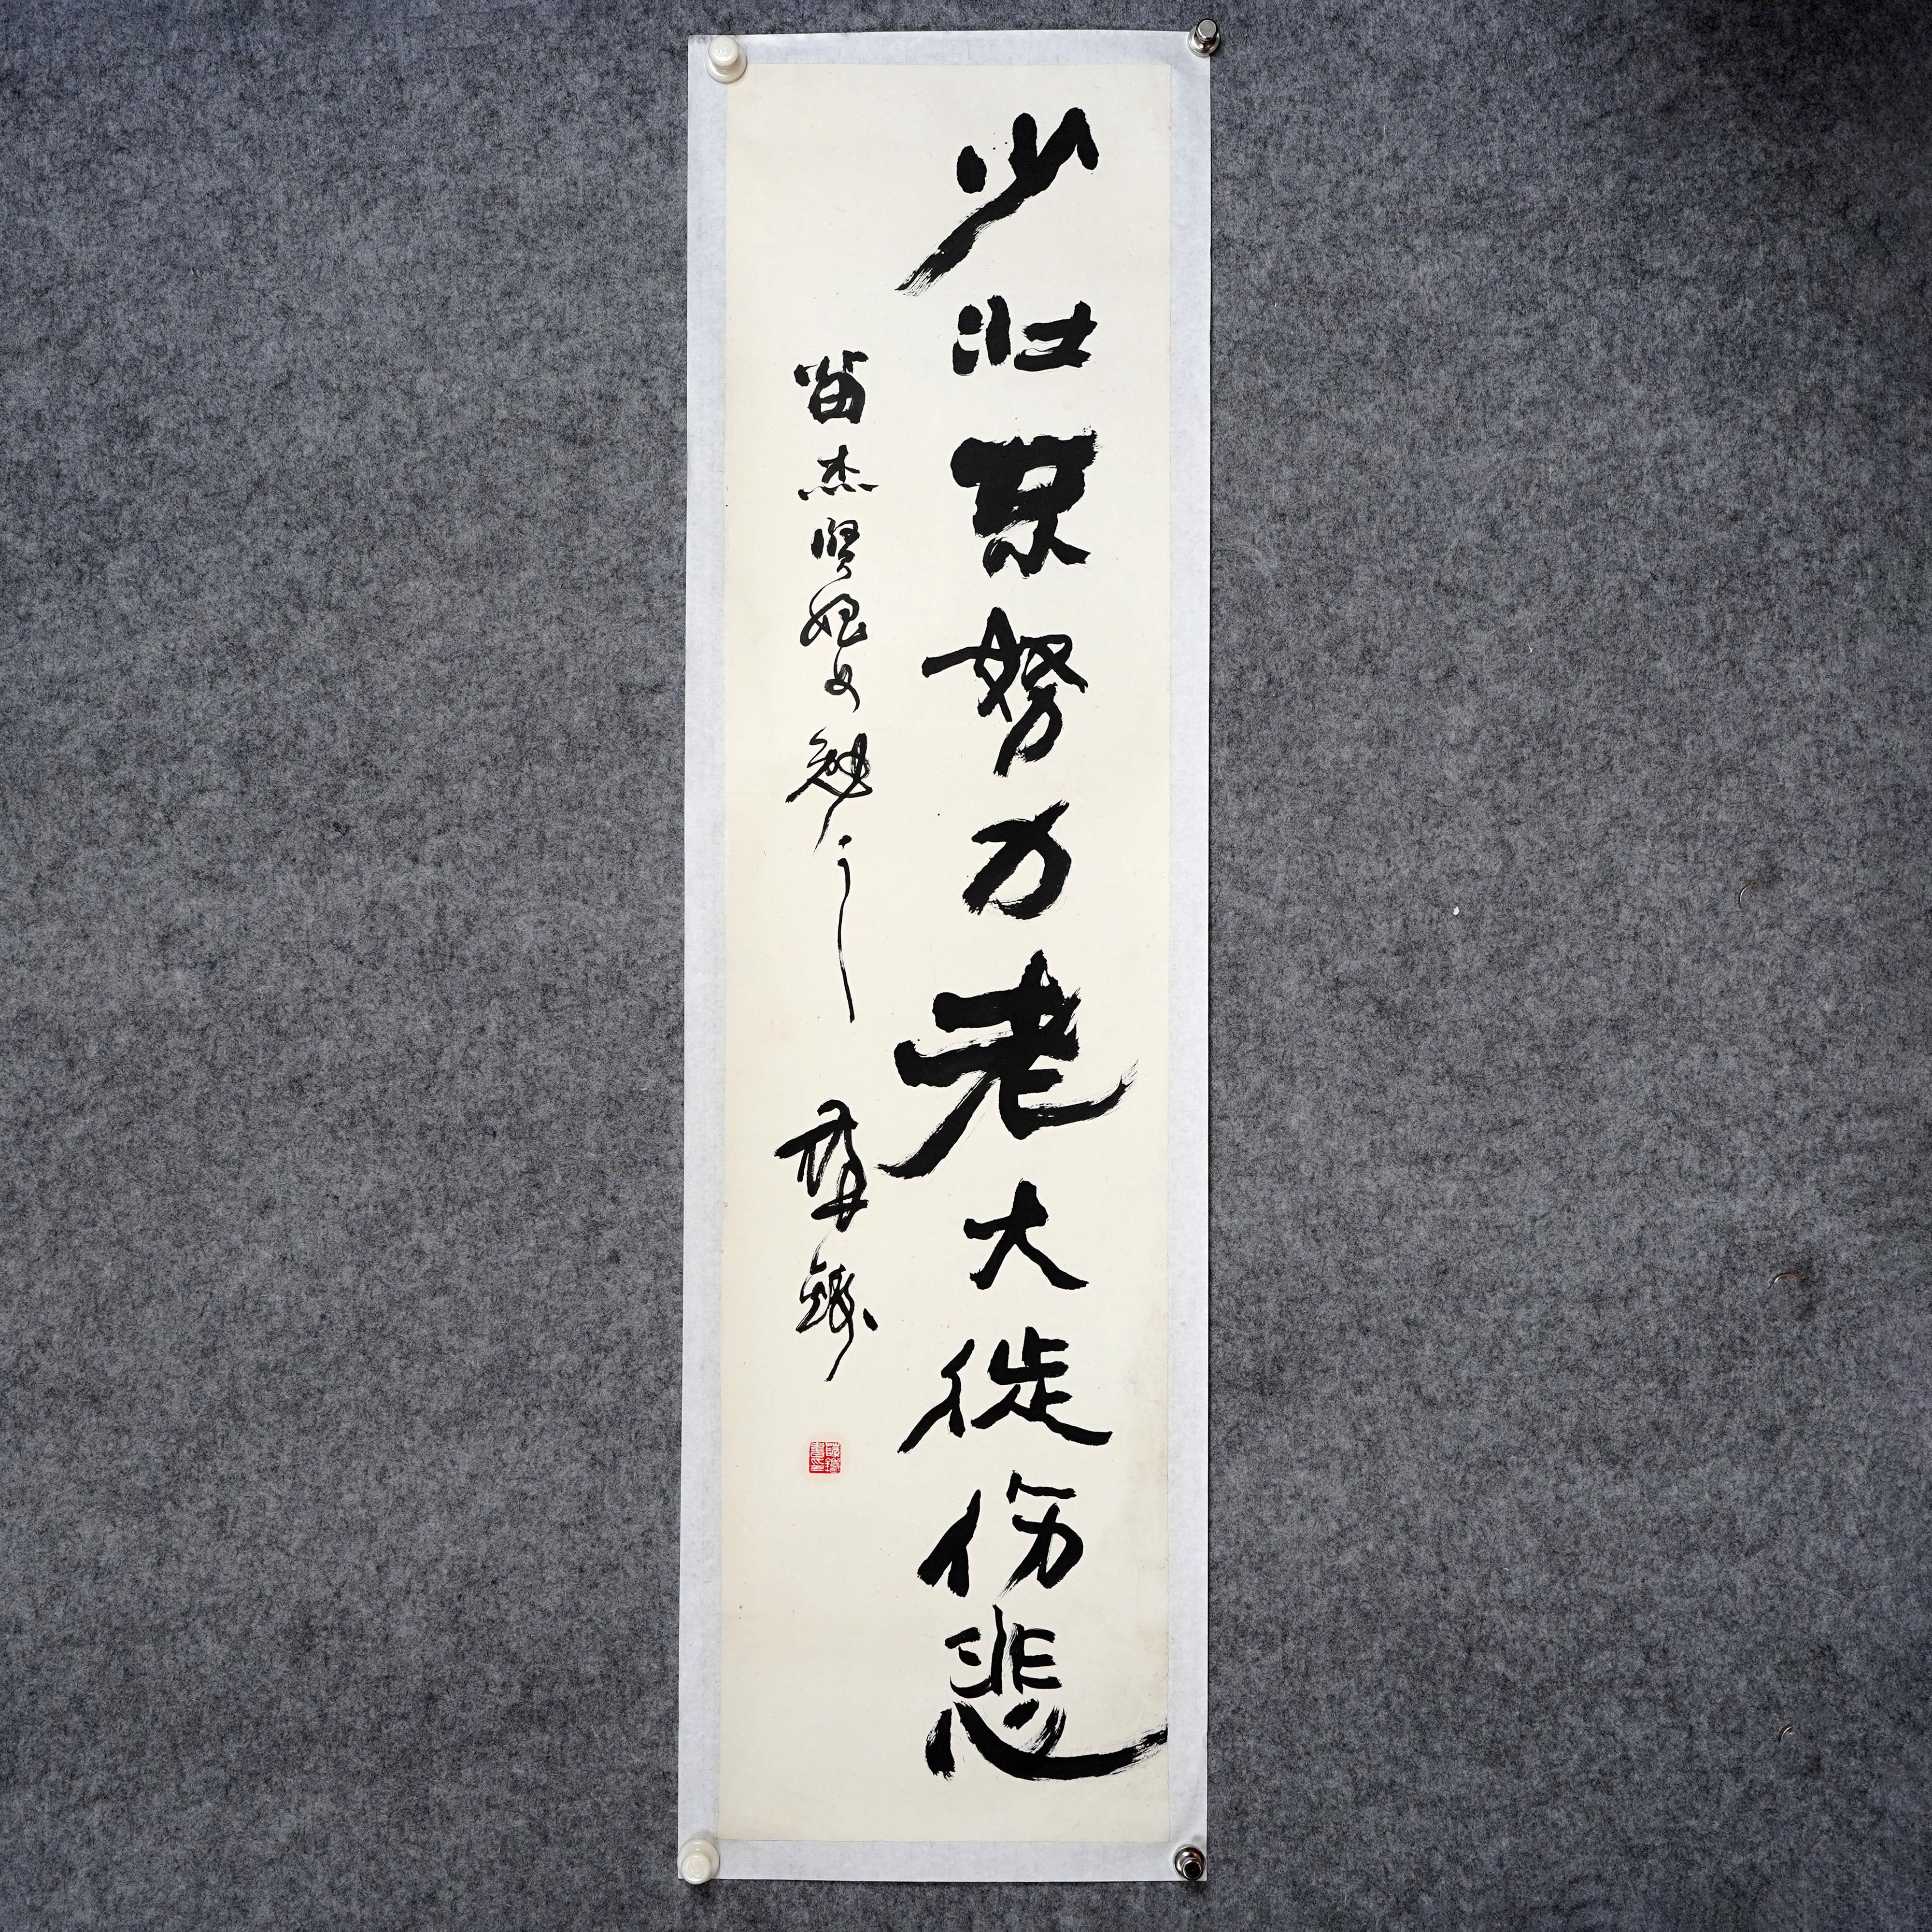 少壮不努力老大徒伤悲
苗杰贤姪女勉之 龚